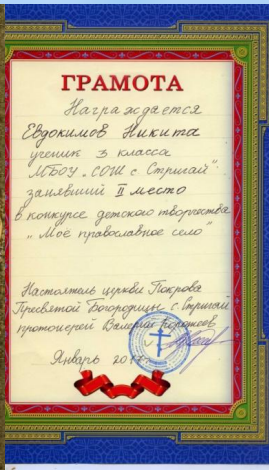 ГРАМОТА
Награждается
Евдокимов Никита
ученик 3 класса
МБОУ „СОШ с. Стригай"
занявший II место
в конкурсе детского творчества
„Моё православное село"
Настоятель церкви Покрова
Пресвятой Богородицы с. Стригай
протоиерей Валерий
Январь